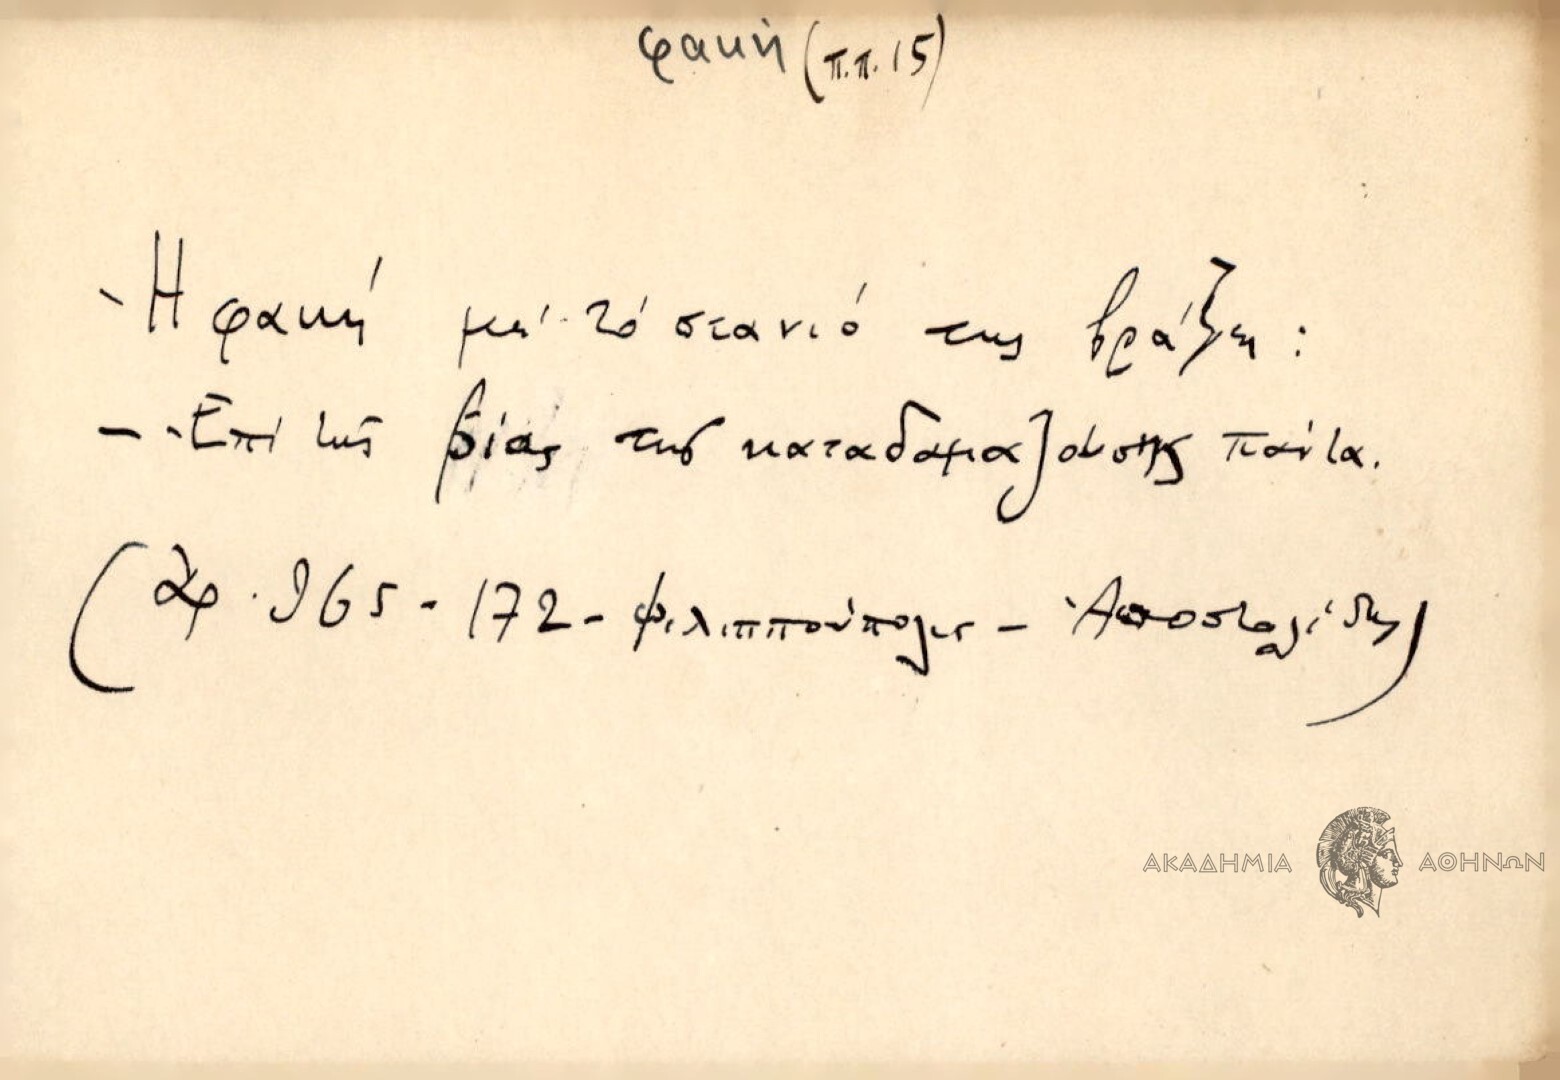 φακή (π.π. 15)
Ἡ φακή μέ τό στανιό της βράζει:
- Ἐπί τῆς βίας της καταδαμαζούσης πάντα.
(χφ. 965 - 172 - Φιλιππούπολις - Ἀποστολίδης)
ΑΚΑΔΗΜΙΑ ΑΘΗΝΩΝ